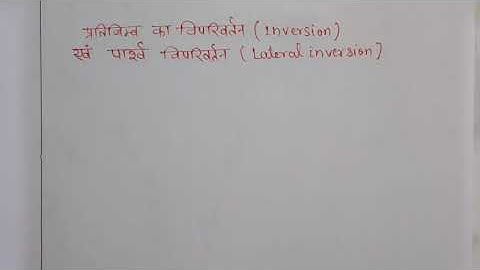 प्रतिबिम्ब का विपरिवर्तन (Inversion)
एवं पार्श्व विपरिवर्तन (Lateral inversion)